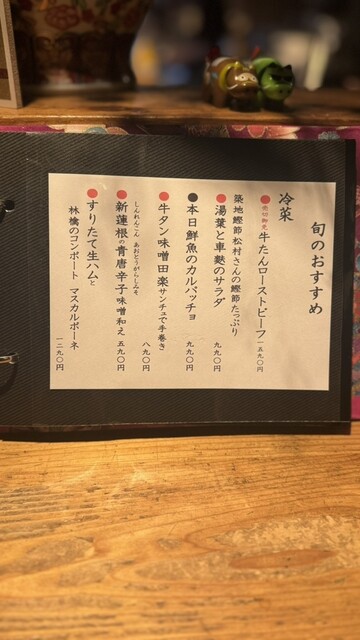 旬のおすすめ
冷菜
売切御免 牛たんローストビーフ 一五九〇円
築地鰹節松村さんの鰹節たっぷり
湯葉と車麩のサラダ 九九〇円
本日鮮魚のカルパッチョ 九九〇円
牛タン味噌田楽サンチュで手巻き 八九〇円
しんれんこん あおとうがらしみそ
新蓮根の青唐辛子味噌和え 五九〇円
すりたて生ハムと
林檎のコンポート マスカルポーネ 一二九〇円